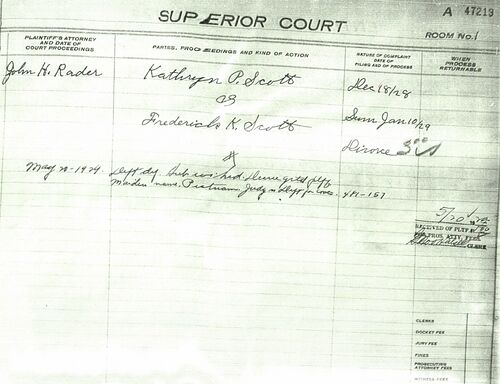 SUPERIOR COURT
A 47213
ROOM No. 1
PLAINTIFF'S ATTORNEY
AND DATE OF
COURT PROCEEDINGS
PARTIES, PROCEEDINGS AND KIND OF ACTION
NATURE OF COMPLAINT
DATE OF
FILING AND OF PROCESS
WHEN
PROCESS
RETURNABLE
John H. Rader
Kathryn P. Scott
vs
Frederick K. Scott
Dec 18/28
Sum Jan 10/29
Divorce
May 20-1929.
Maiden name. Judg vs Deft for costs.
5/20
RECEIVED OF PLFF
PROS. ATTY. FEE
CLERK
CLERKS
DOCKET FEE
JURY FEE
FINES
PROSECUTING
ATTORNEY FEES
WITNESS FEES